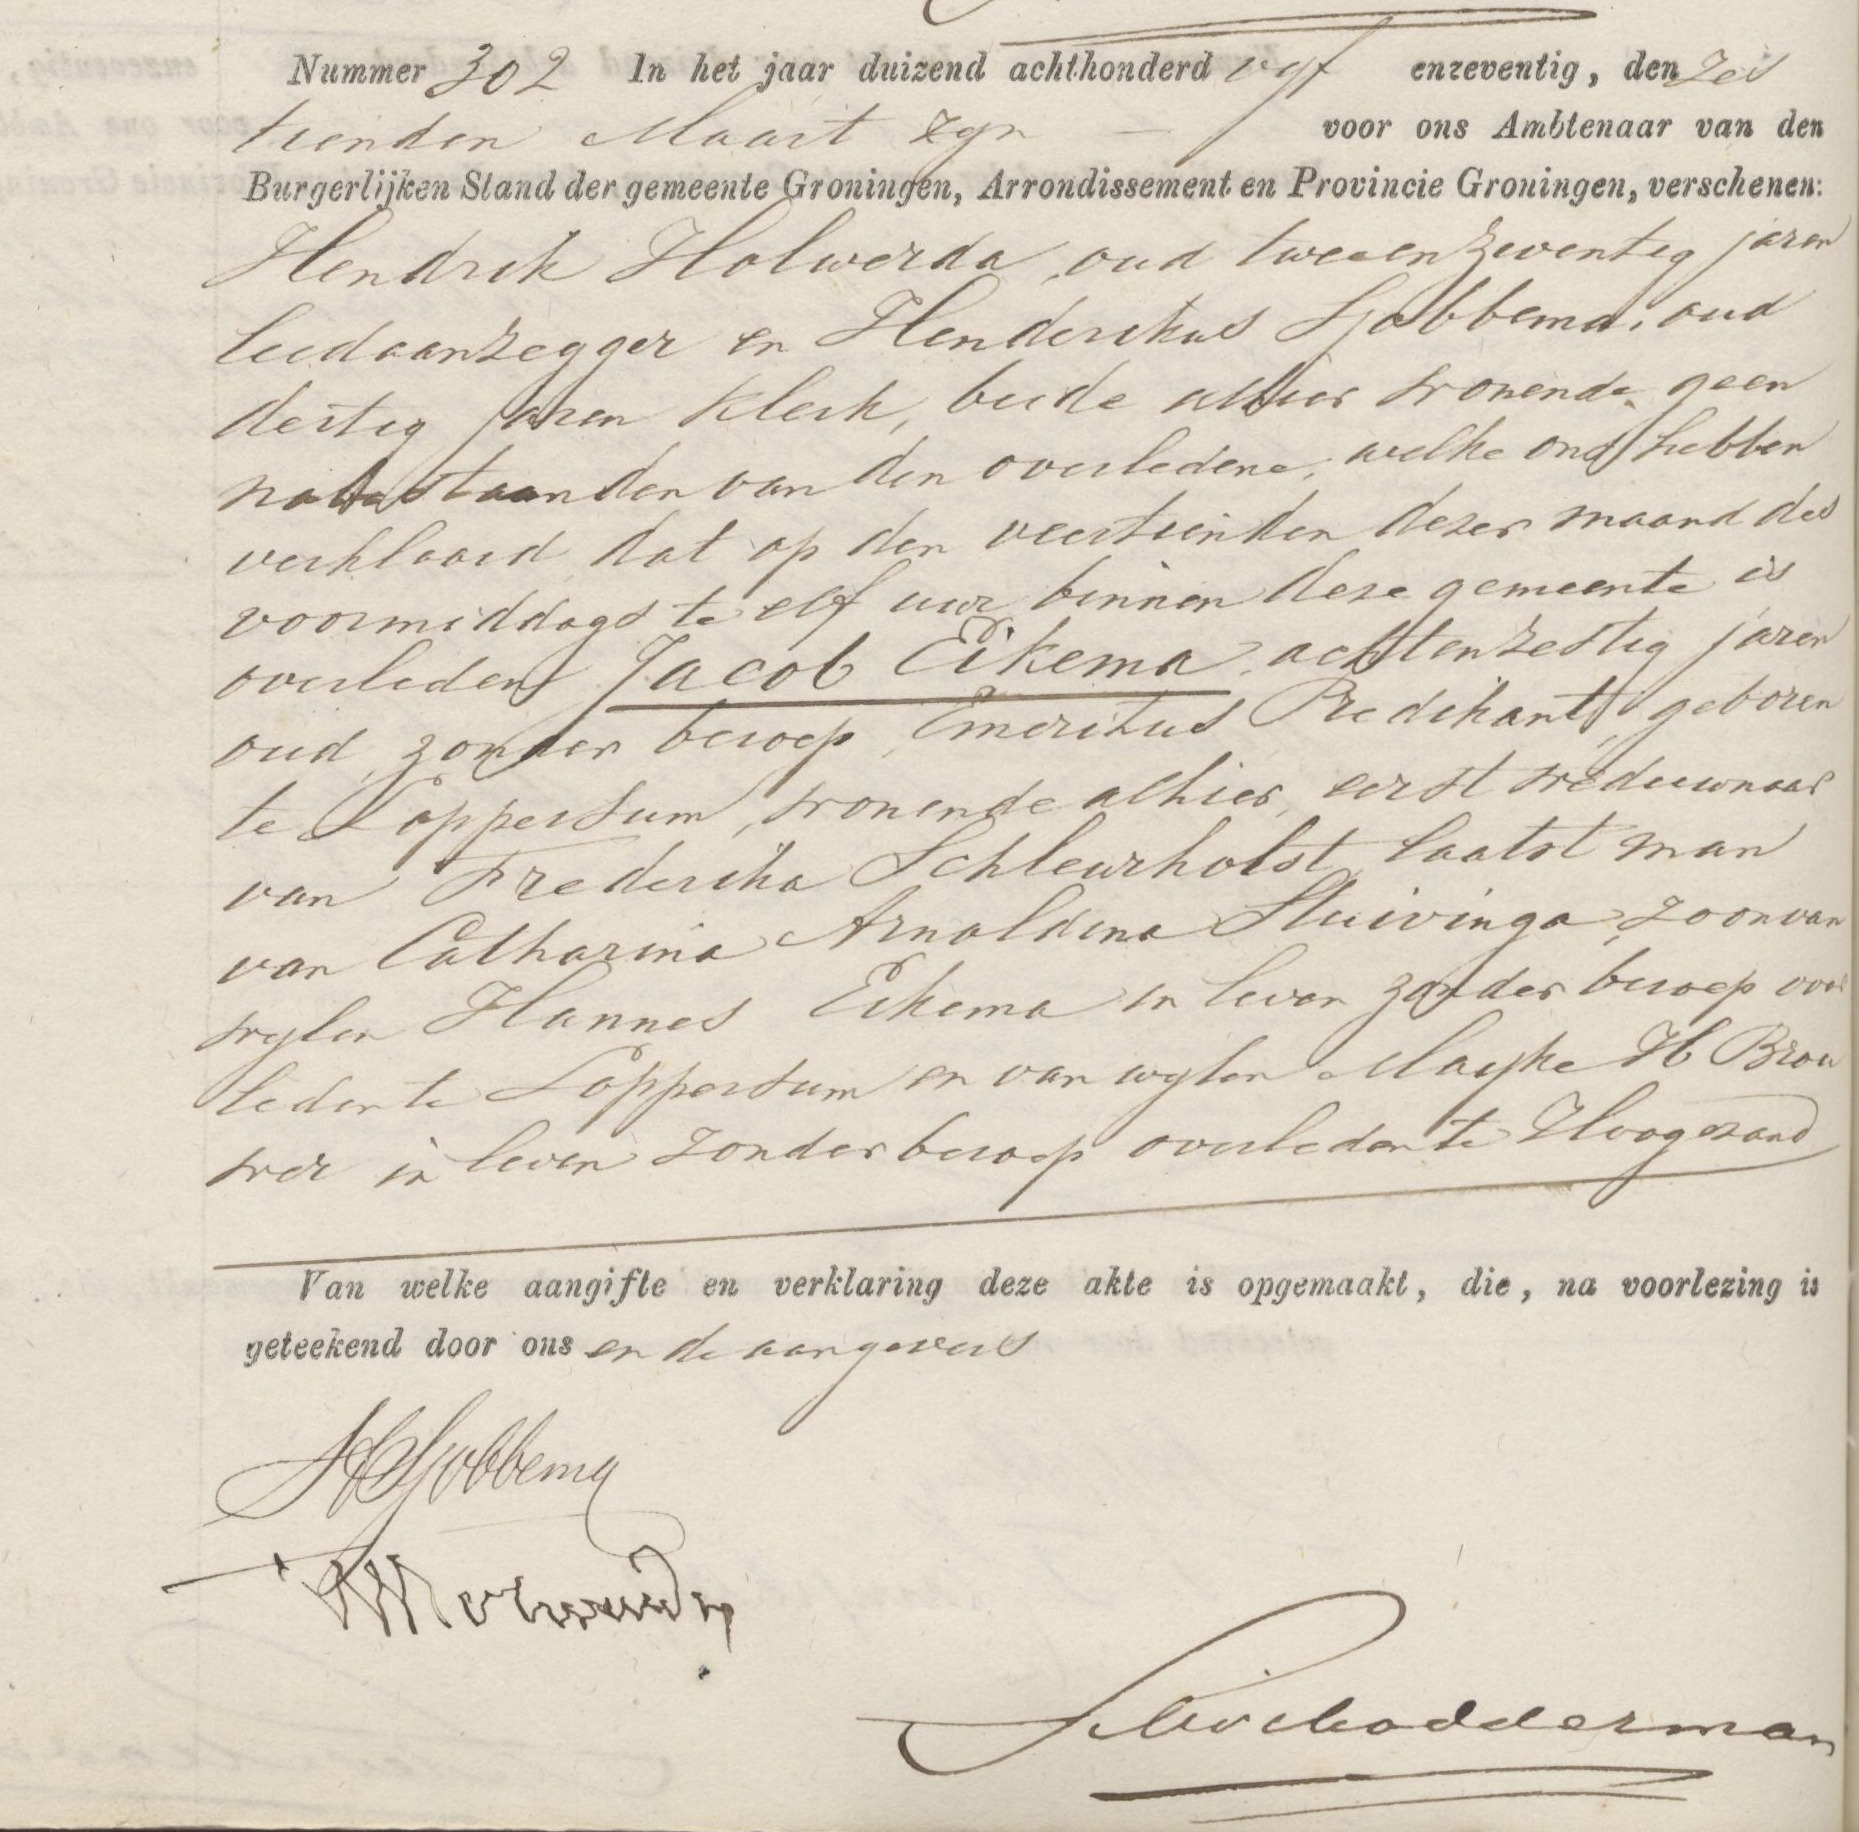 Nummer 302 In het jaar duizend achthonderd vyf enzeventig, den zes
tienden Maart zyn voor ons Ambtenaar van den
Burgerlijken Stand der gemeente Groningen, Arrondissement en Provincie Groningen, verschenen:
Hendrik Holwerda, oud tweeenzeventig jaren
leedaanzegger en Henderikus Sjobbema, oud
dertig jaren klerk, beide alhier wonende, geen
nabestaanden van den overledene, welke ons hebben
verklaard dat op den veertienden dezer maand des
voormiddags te elf uur binnen deze gemeente is
overleden Jacob Eikema, achtenzestig jaren
oud, zonder beroep, Emeritus Predikant, geboren
te Loppersum, wonende alhier, eerst weduwnaar
van Frederika Schleurholst, laatst man
van Catharina Arnoldina Sluivinga, zoon van
wylen Hannes Eikema in leven zonder beroep over
leden te Loppersum en van wylen Maryke H Brou
wer in leven zonder beroep overleden te Hoogezand
Van welke aangifte en verklaring deze akte is opgemaakt, die, na voorlezing is
geteekend door ons en de aangevers
H Sjobbema
H Holwerda